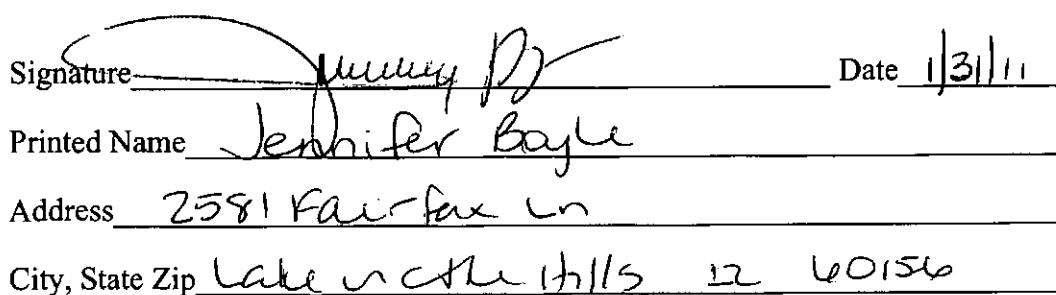 Signature Date 1/31/11
Printed Name Jennifer Boyle
Address 2581 Fairfax Ln
City, State Zip Lake in the Hills IL 60156